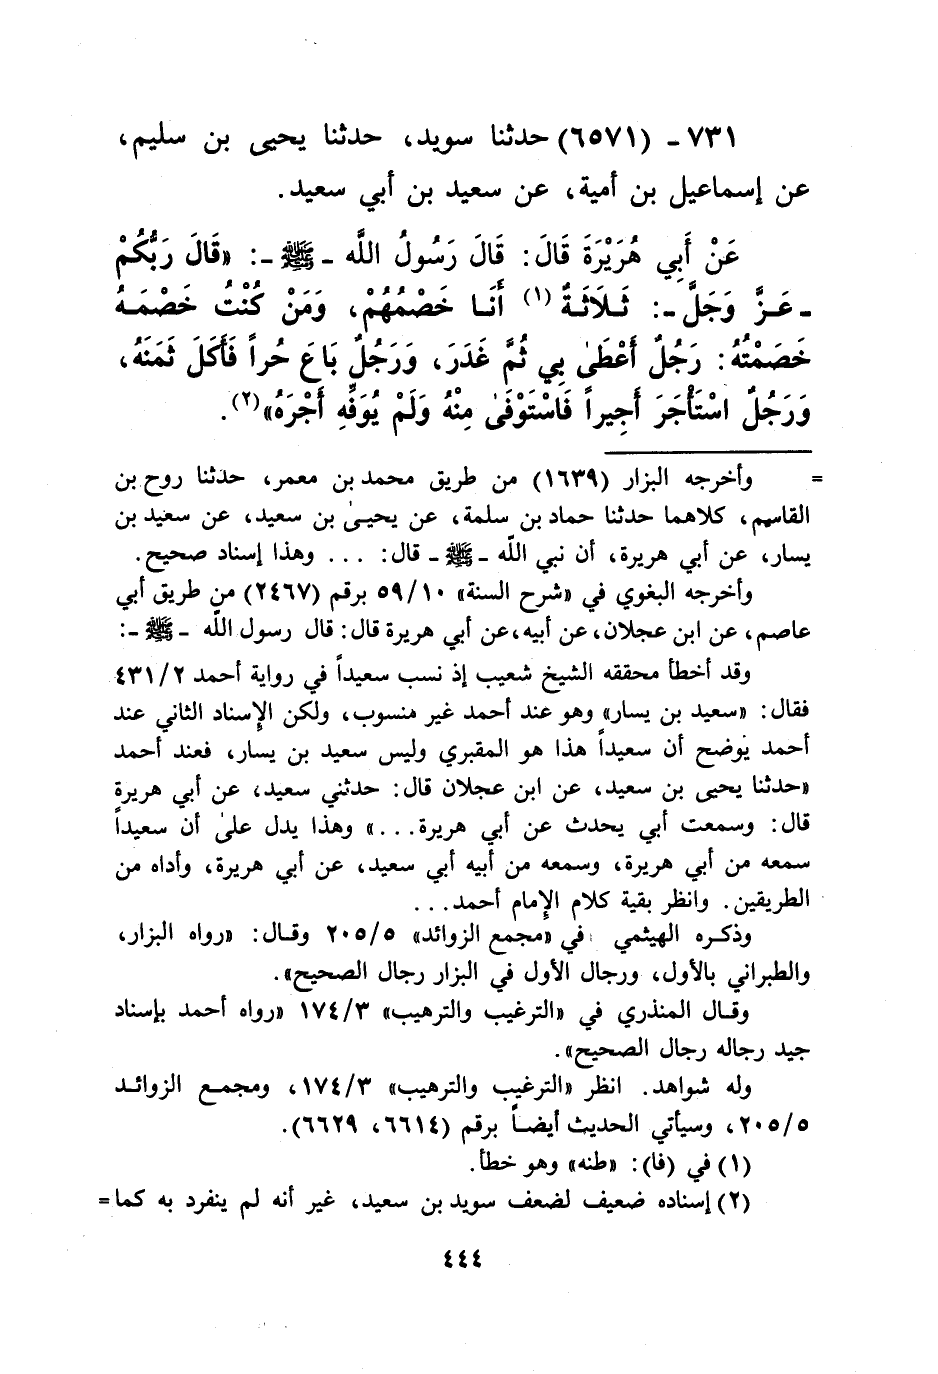 ٧٣١ - (٦٥٧١) حدثنا سويد، حدثنا يحيى بن سليم،
عن إسماعيل بن أمية، عن سعيد بن أبي سعيد.
عَنْ أَبِي هُرَيْرَةَ قَالَ: قَالَ رَسُولُ اللَّه - ﷺ -: «قَالَ رَبُّكُمْ
- عَزَّ وَجَلَّ -: ثَلَاثَةٌ (١) أَنَا خَصْمُهُمْ، وَمَنْ كُنْتُ خَصْمَهُ
خَصَمْتُهُ: رَجُلٌ أَعْطَىٰ بِي ثُمَّ غَدَرَ، وَرَجُلٌ بَاعَ حُراً فَأَكَلَ ثَمَنَهُ،
وَرَجُلٌ اسْتَأْجَرَ أَجِيراً فَاسْتَوْفَىٰ مِنْهُ وَلَمْ يُوَفِّهِ أَجْرَهُ»(٢).
= وأخرجه البزار (١٦٣٩) من طريق محمد بن معمر، حدثنا روح بن
القاسم، كلاهما حدثنا حماد بن سلمة، عن يحيىٰ بن سعيد، عن سعيد بن
يسار، عن أبي هريرة، أن نبي اللّه - ﷺ - قال: ... وهذا إسناد صحيح.
وأخرجه البغوي في «شرح السنة» ٥٩/١٠ برقم (٢٤٦٧) من طريق أبي
عاصم، عن ابن عجلان، عن أبيه، عن أبي هريرة قال: قال رسول اللّه - ﷺ -:
وقد أخطأ محققه الشيخ شعيب إذ نسب سعيداً في رواية أحمد ٤٣١/٢
فقال: «سعيد بن يسار» وهو عند أحمد غير منسوب، ولكن الإسناد الثاني عند
أحمد يوضح أن سعيداً هذا هو المقبري وليس سعيد بن يسار، فعند أحمد
«حدثنا يحيى بن سعيد، عن ابن عجلان قال: حدثني سعيد، عن أبي هريرة
قال: وسمعت أبي يحدث عن أبي هريرة...» وهذا يدل علىٰ أن سعيداً
سمعه من أبي هريرة، وسمعه من أبيه أبي سعيد، عن أبي هريرة، وأداه من
الطريقين. وانظر بقية كلام الإمام أحمد...
وذكره الهيثمي في «مجمع الزوائد» ٢٠٥/٥ وقال: «رواه البزار،
والطبراني بالأول، ورجال الأول في البزار رجال الصحيح».
وقال المنذري في «الترغيب والترهيب» ١٧٤/٣ «رواه أحمد بإسناد
جيد رجاله رجال الصحيح».
وله شواهد. انظر «الترغيب والترهيب» ١٧٤/٣، ومجمع الزوائد
٢٠٥/٥، وسيأتي الحديث أيضاً برقم (٦٦١٤، ٦٦٢٩).
(١) في (فا): «طنه» وهو خطأ.
(٢) إسناده ضعيف لضعف سويد بن سعيد، غير أنه لم ينفرد به كما =
٤٤٤